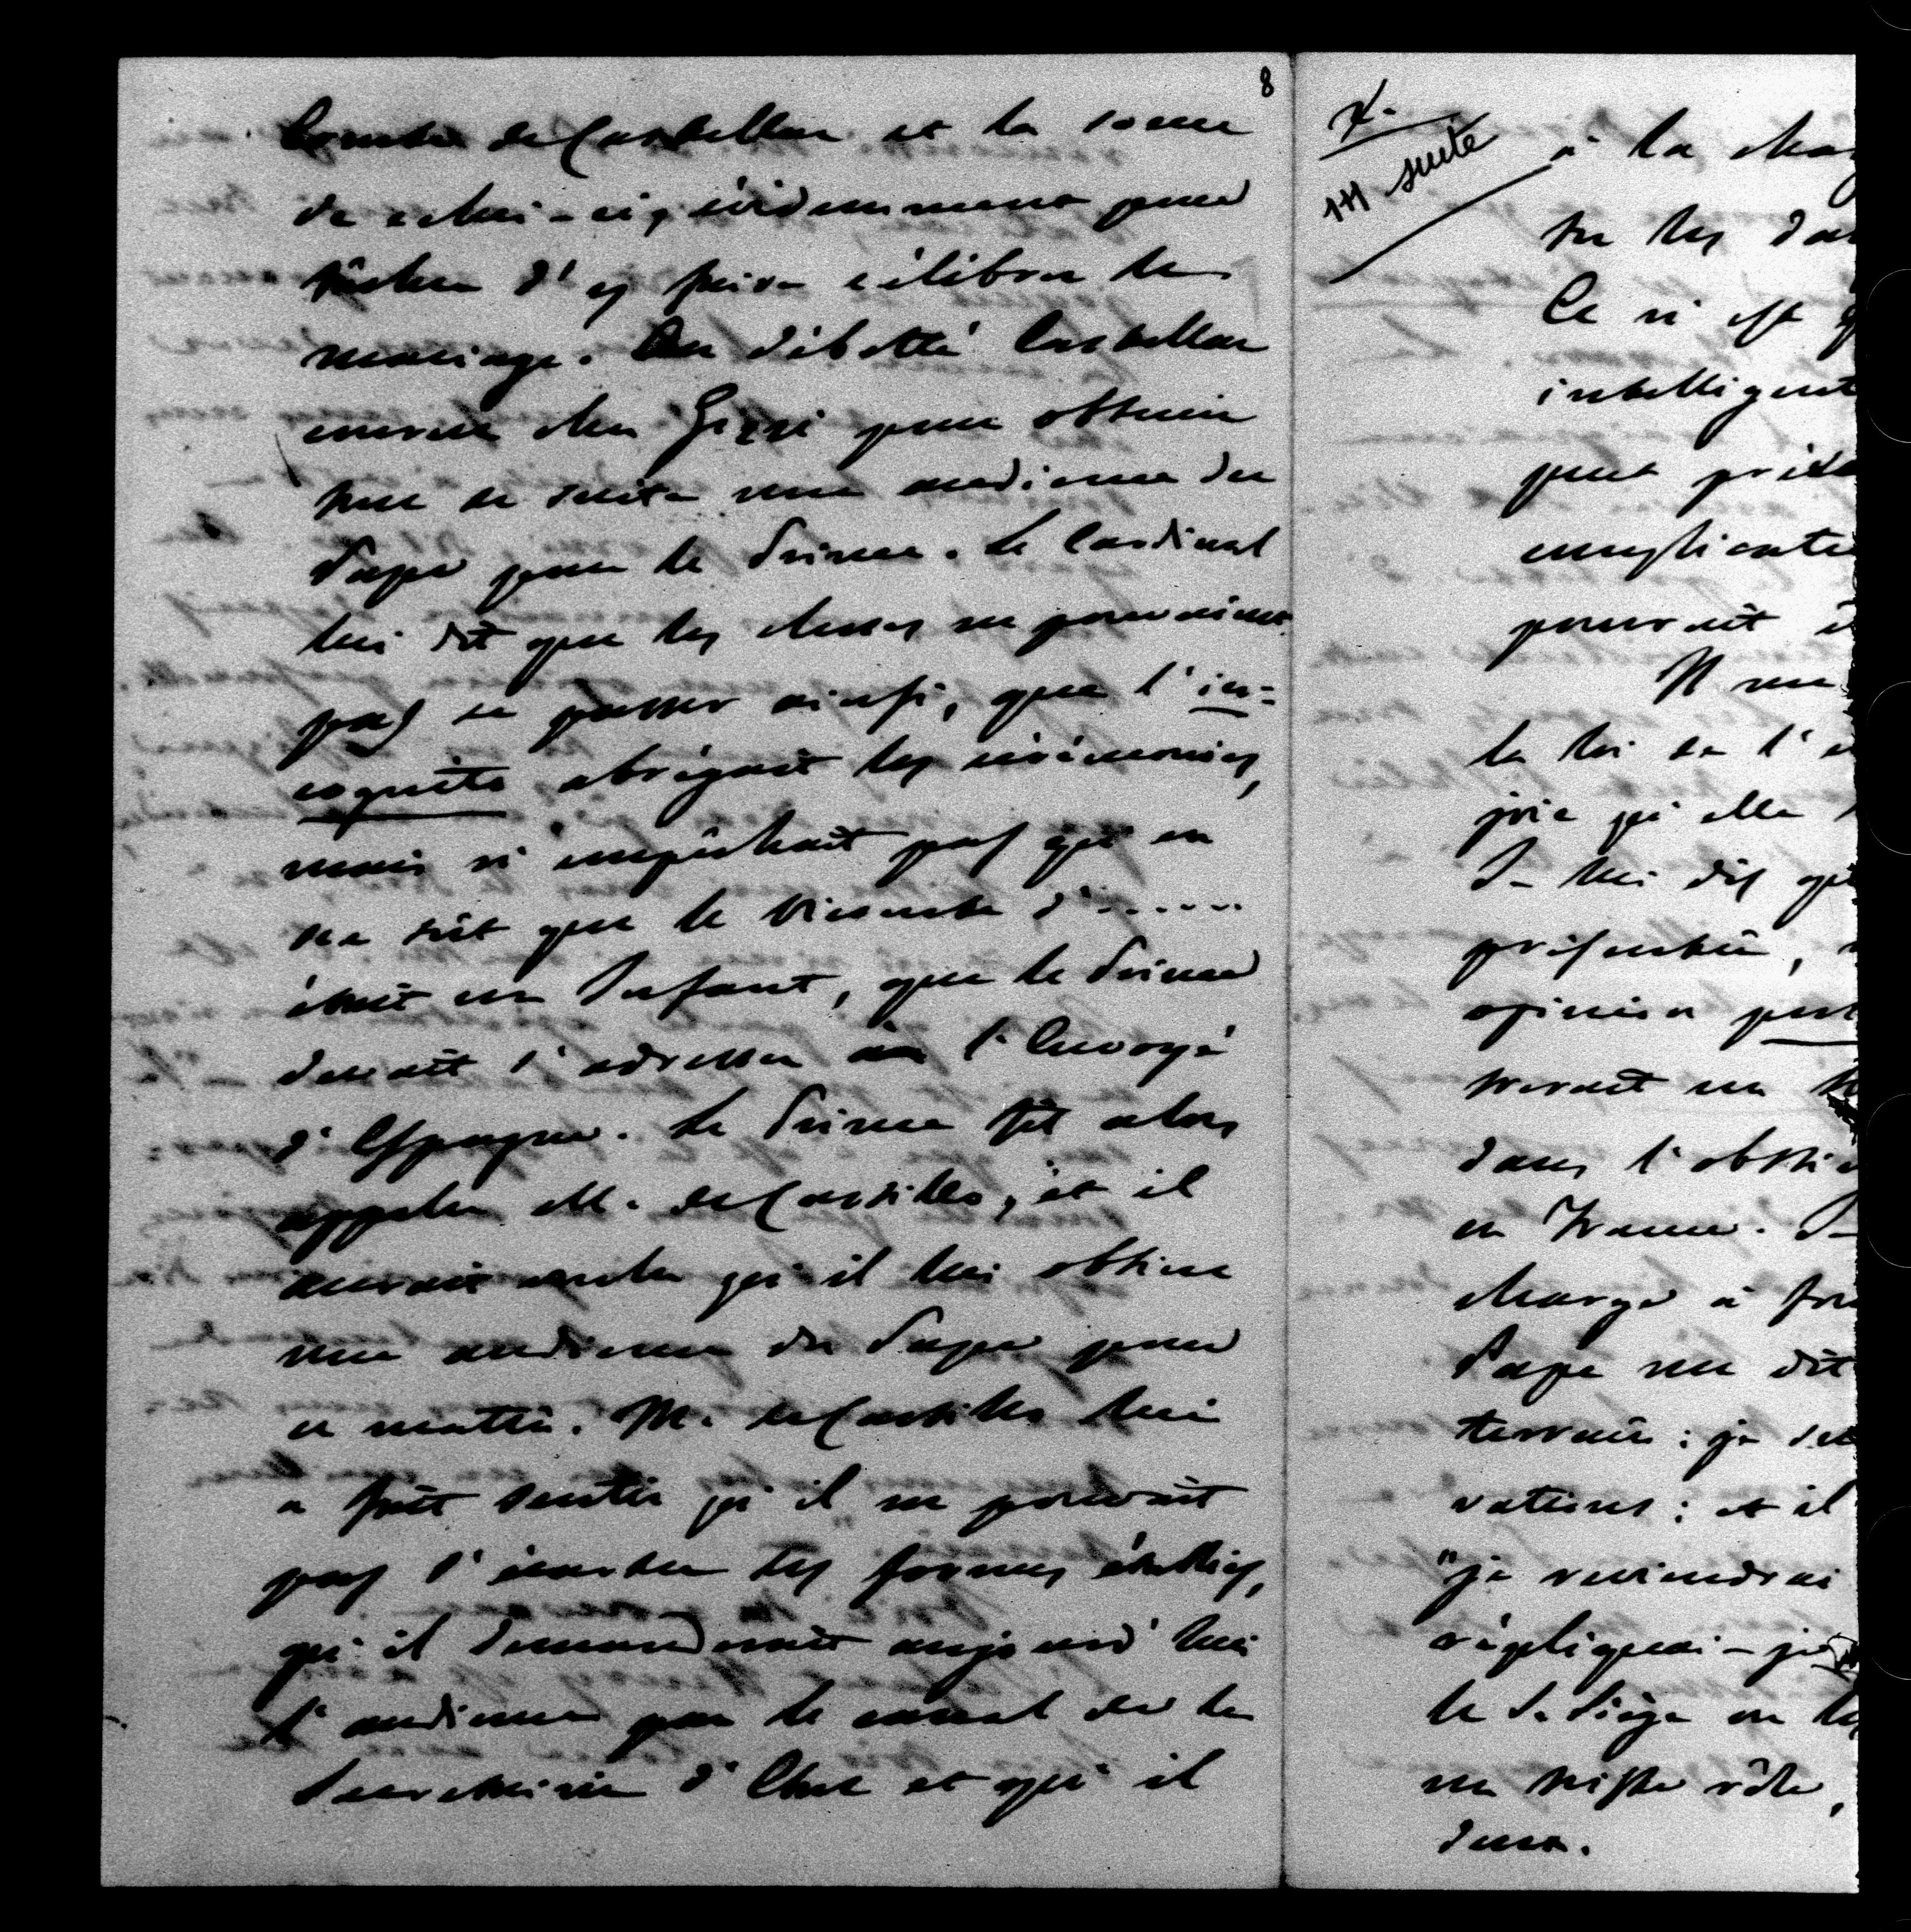 8
Comte de Castellar et la soeur
de celui-ci, évidemment pour
tâcher d'y faire célébrer le
mariage. Au débotté Castellar
courut chez Gizzi pour obtenir
tout de suite une audience du
Pape pour le Prince. Le Cardinal
lui dit que les choses ne pouvaient
pas se passer ainsi, que l'in=
cognito abrégeait les cérémonies,
mais n'empêchait pas qu'on
ne sût que le Vicomte d'......
était un Infant, que le Prince
devait s'adresser à l'Envoyé
d'Espagne. Le Prince fit alors
appeler M. de Castillo, et il
aurait voulu qu'il lui obtînt
une audience du Pape pour
ce matin. M. de Castillo lui
a fait sentir qu'il ne pouvait
pas s'écarter des formes établies,
qu'il demanderait aujourd'hui
l'audience par le canal de la
Secrétairie d'Etat et qu'il
X.
171 suite
à la
sur les
Ce n'est
intelligent
peut

pourrait
Il me
la loi de l'
joie qu'elle
Je lui dis
présenter,
opinion

dans l'
en France. Je
charge à
Pape me dit
terrain: je
vations: et il
"je reviendrai
répliquai-je
le St. Siège
un triste rôle,